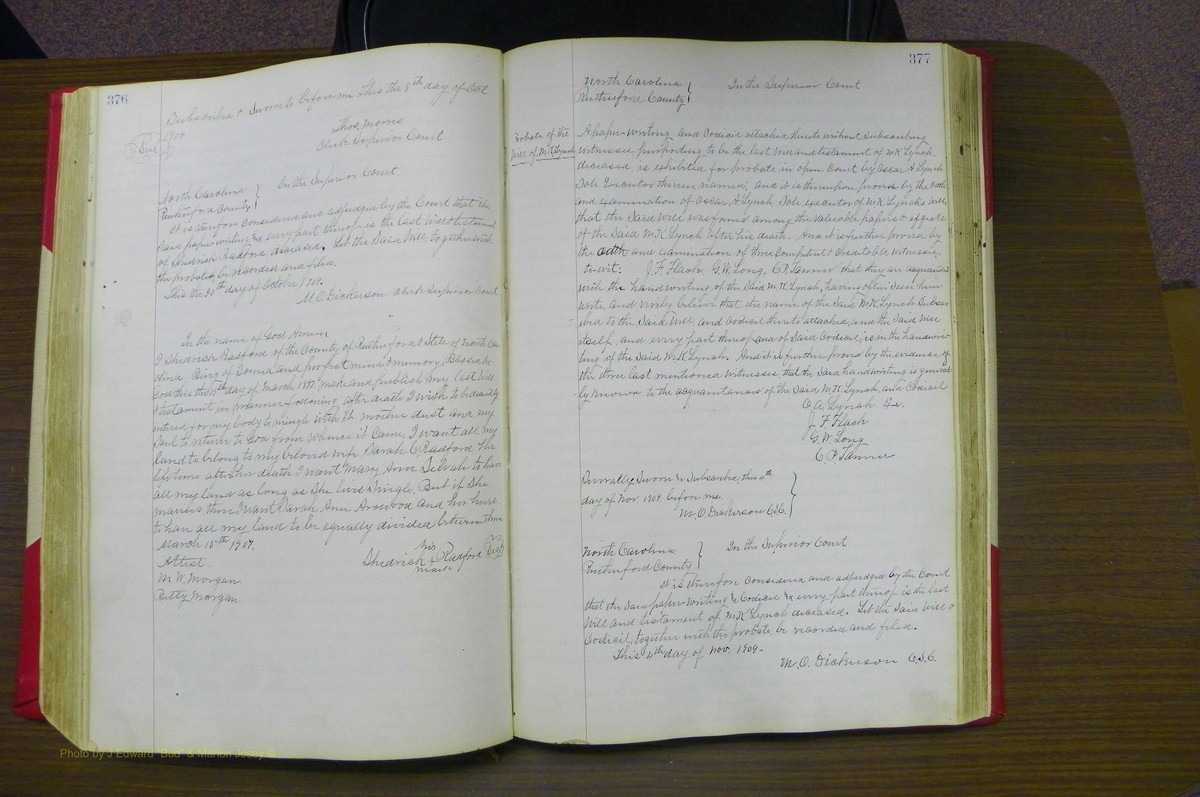 376
Subscribed & Sworn to before me this the 8th day of Oct
1909
Seal
Thos. Morris
Clerk Superior Court
North Carolina
Rutherford County
In the Superior Court
It is therefore Considered and adjudged by the Court that the
Said paper-writing & every part thereof is the last Will & testament
of Shedrich Radford deceased. Let the Said Will, together with
the probate, be recorded and filed.
This the 30th day of October 1909.
M. O. Dickerson Clerk Superior Court
In the name of God Amen
I Shedrich Radford of the County of Rutherford & State of North Caro
lina. Being of Sound and perfect mind & memory, Blessed be
God this the 15th day of March 1907, make and publish my last Will
& testament in manner following, after death I wish to be decently
intered for my body to mingle with its mother dust and my
Soul to return to God from whence it came, I want all my
land to belong to my beloved wife Sarah C Radford her
life time after her death I want Mary Ann to have
all my land as long as She lives Single, But if She
marries then I want Sarah Ann Arowood and her heirs
to have all my land to be equally divided between them
March 15th 1907.
Attest.
M. W. Morgan.
Betty Morgan
his
Shedrich X Radford (Seal)
mark
377
North Carolina
Rutherford County
In the Superior Court
Probate of the
Will of M K Lynch
A paper-writing and Codicil attached thereto without Subscribing
witnesses purporting to be the last Will and testament of M K Lynch,
deceased, is exhibited for probate in open Court by Oscar A Lynch
Sole Executor therein named; and it is thereupon proved by the oath
and examination of Oscar A Lynch Sole executor of M K Lynch's Will
that the Said Will was found among the valuable papers & effects
of the Said M K Lynch after his death. And it is further proved by
the oath and examination of three Competent & Creditable witnesses,
to-wit: J. F. Flack, G. W. Long, C. P. Tanner that they are acquainted
with the handwriting of the Said M. K. Lynch, having often Seen him
write, and verily believe that the name of the Said M K Lynch Subscri
bed to the Said Will, and Codicil thereto attached, and the Said Will
itself, and every part thereof and of Said Codicil, is in the handwri-
ting of the Said M. K Lynch. And it is further proved by the evidence of
the three last mentioned witnesses that the Said handwriting is general
ly known to the acquaintances of the Said M K Lynch, and Codicil
O. A. Lynch Ex.
J. F. Flack
G. W. Long
C. P. Tanner
Severally Sworn & Subscribed, this 4th
day of Nov 1909, before me.
M. O. Dickerson C.S.C.
North Carolina
Rutherford County
In the Superior Court
It is therefore Considered and adjudged by the Court
that the Said paper-writing & Codicil & every part thereof is the last
Will and testament of M K Lynch deceased. Let the Said Will &
Codicil, together with the probate, be recorded and filed.
This 4th day of Nov. 1909-
M. O. Dickerson C.S.C.
Photo by J Edward "Bud" & Marion Josey ©